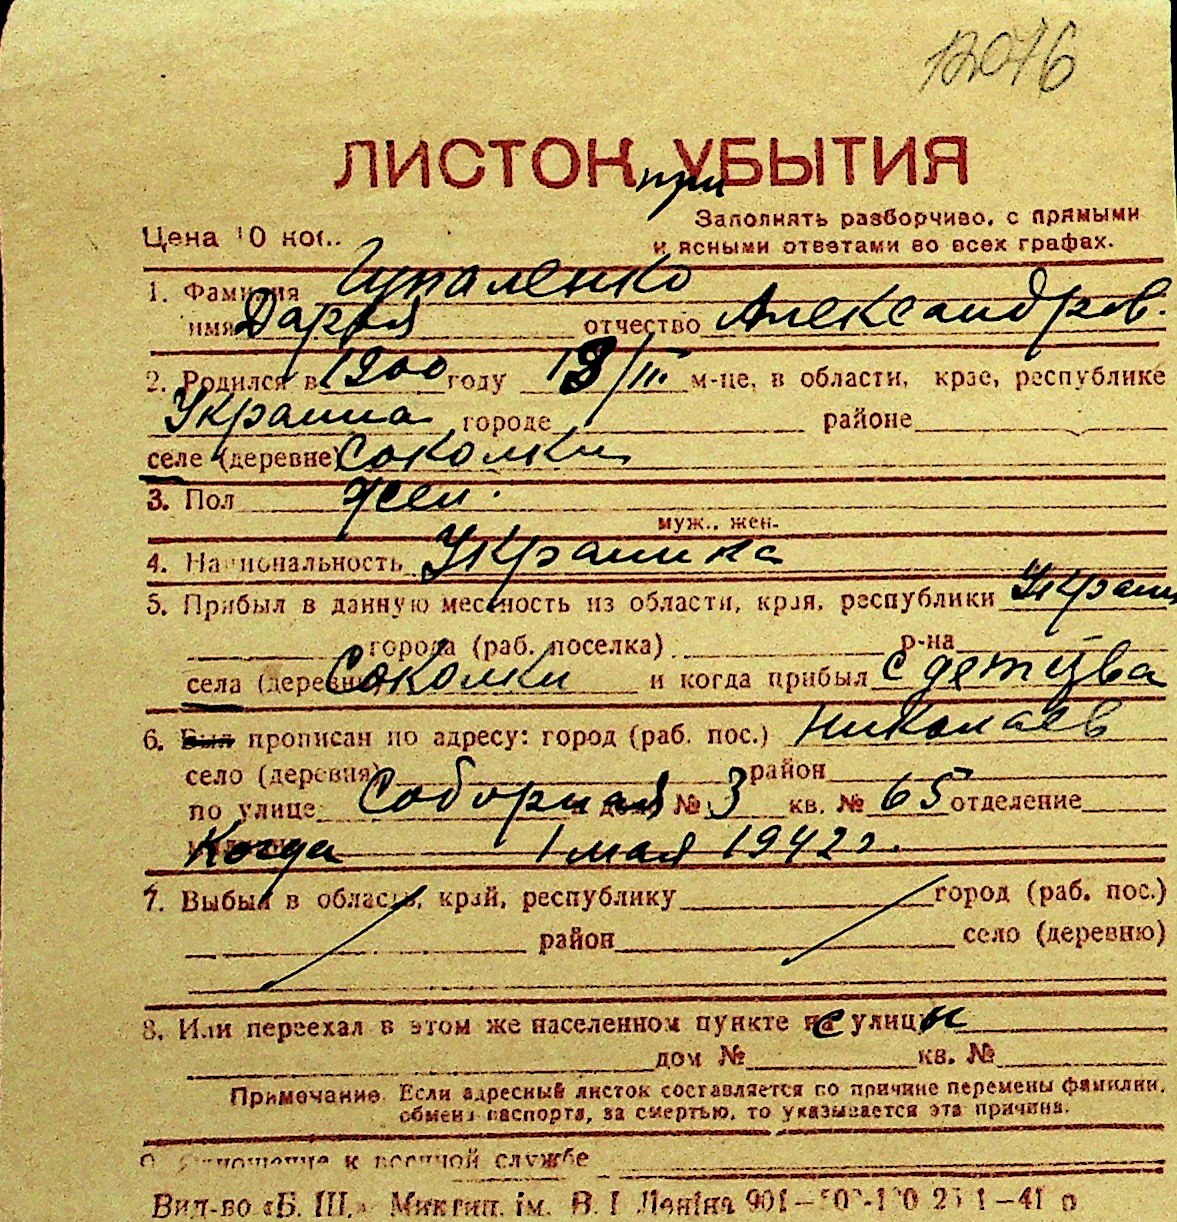 12076
ЛИСТОК УБЫТИЯ
при
Заполнять разборчиво, с прямыми
Цена 10 коп.
и ясными ответами во всех графах.
1. Фамилия Чупаленко
имя Дарья отчество Александров.
2. Родился в 1900 году 18/III. м-це, в области, крае, республике
Украина городе районе
селе (деревне) Соколки
3. Пол жен.
муж., жен.
4. Национальность Украинка
5. Прибыл в данную местность из области, края, республики Украин
города (раб. поселка) р-на
села (деревни) Соколки и когда прибыл с детства
6. Был прописан по адресу: город (раб. пос.) Николаев
село (деревня) район
по улице Соборная дом № 3 кв. № 65 отделение
Когда 1 мая 1942 г.
7. Выбыл в область, край, республику город (раб. пос.)
район село (деревню)
8. Или переехал в этом же населенном пункте с улицы
дом № кв. №
Примечание. Если адресный листок составляется по причине перемены фамилии,
обмена паспорта, за смертью, то указывается эта причина.
9. Отношение к военной службе
Вид-во «Б. Ш.» Микгип. ім. В. І. Леніна 901